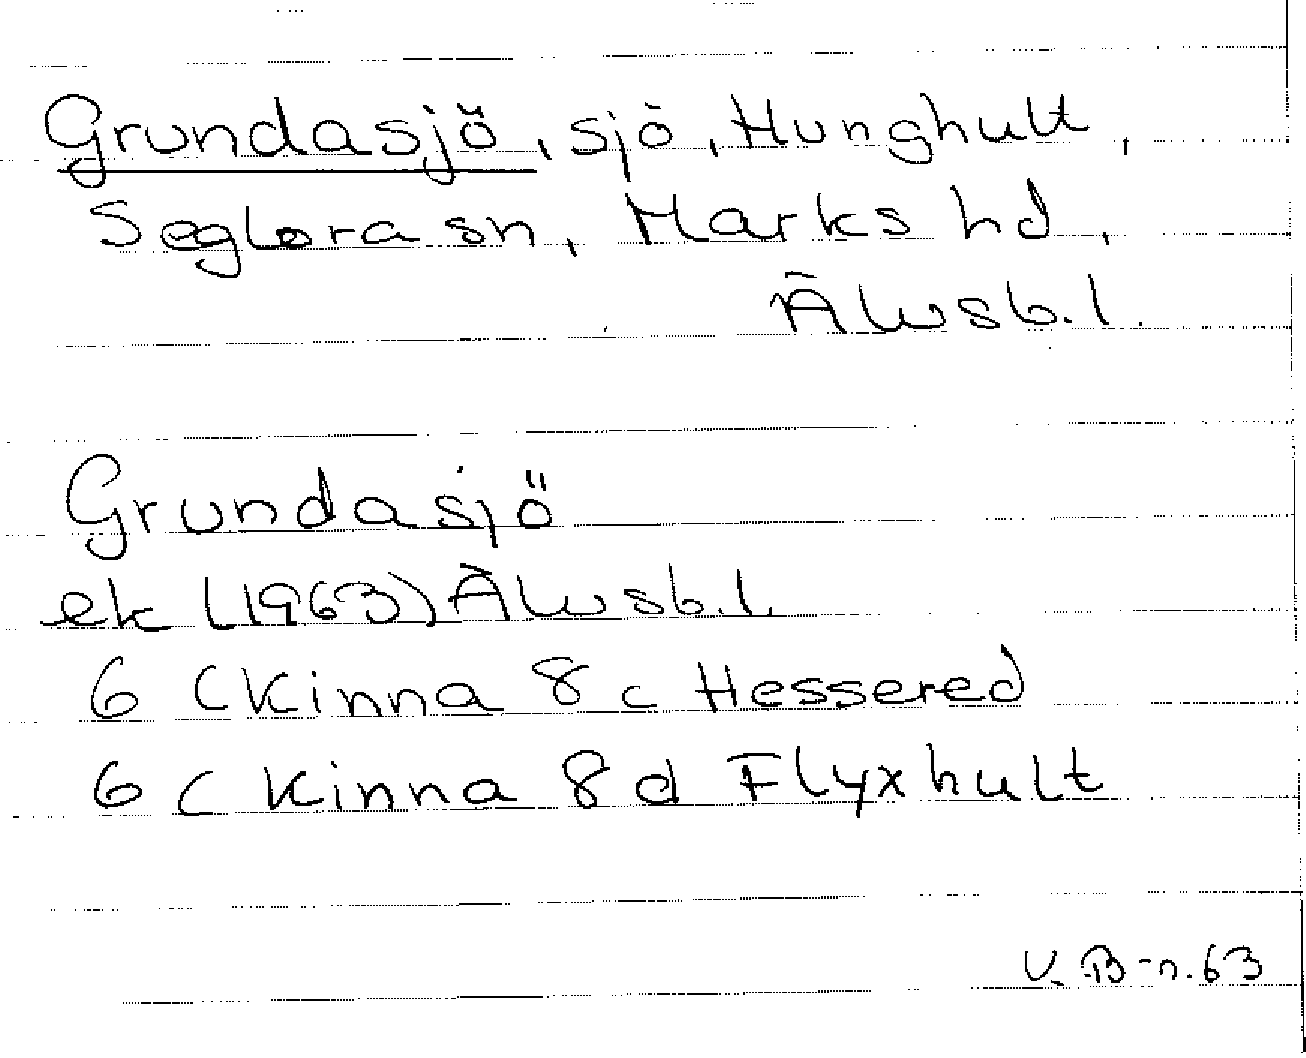 Grundasjö, sjö, Hunghult,
Seglora sn, Marks hd,
Älvsb. l.
Grundasjö
ek (1963) Älvsb. l.
6 C Kinna 8 c Hessered
6 C Kinna 8 d Flyxhult
V. B-n. 63